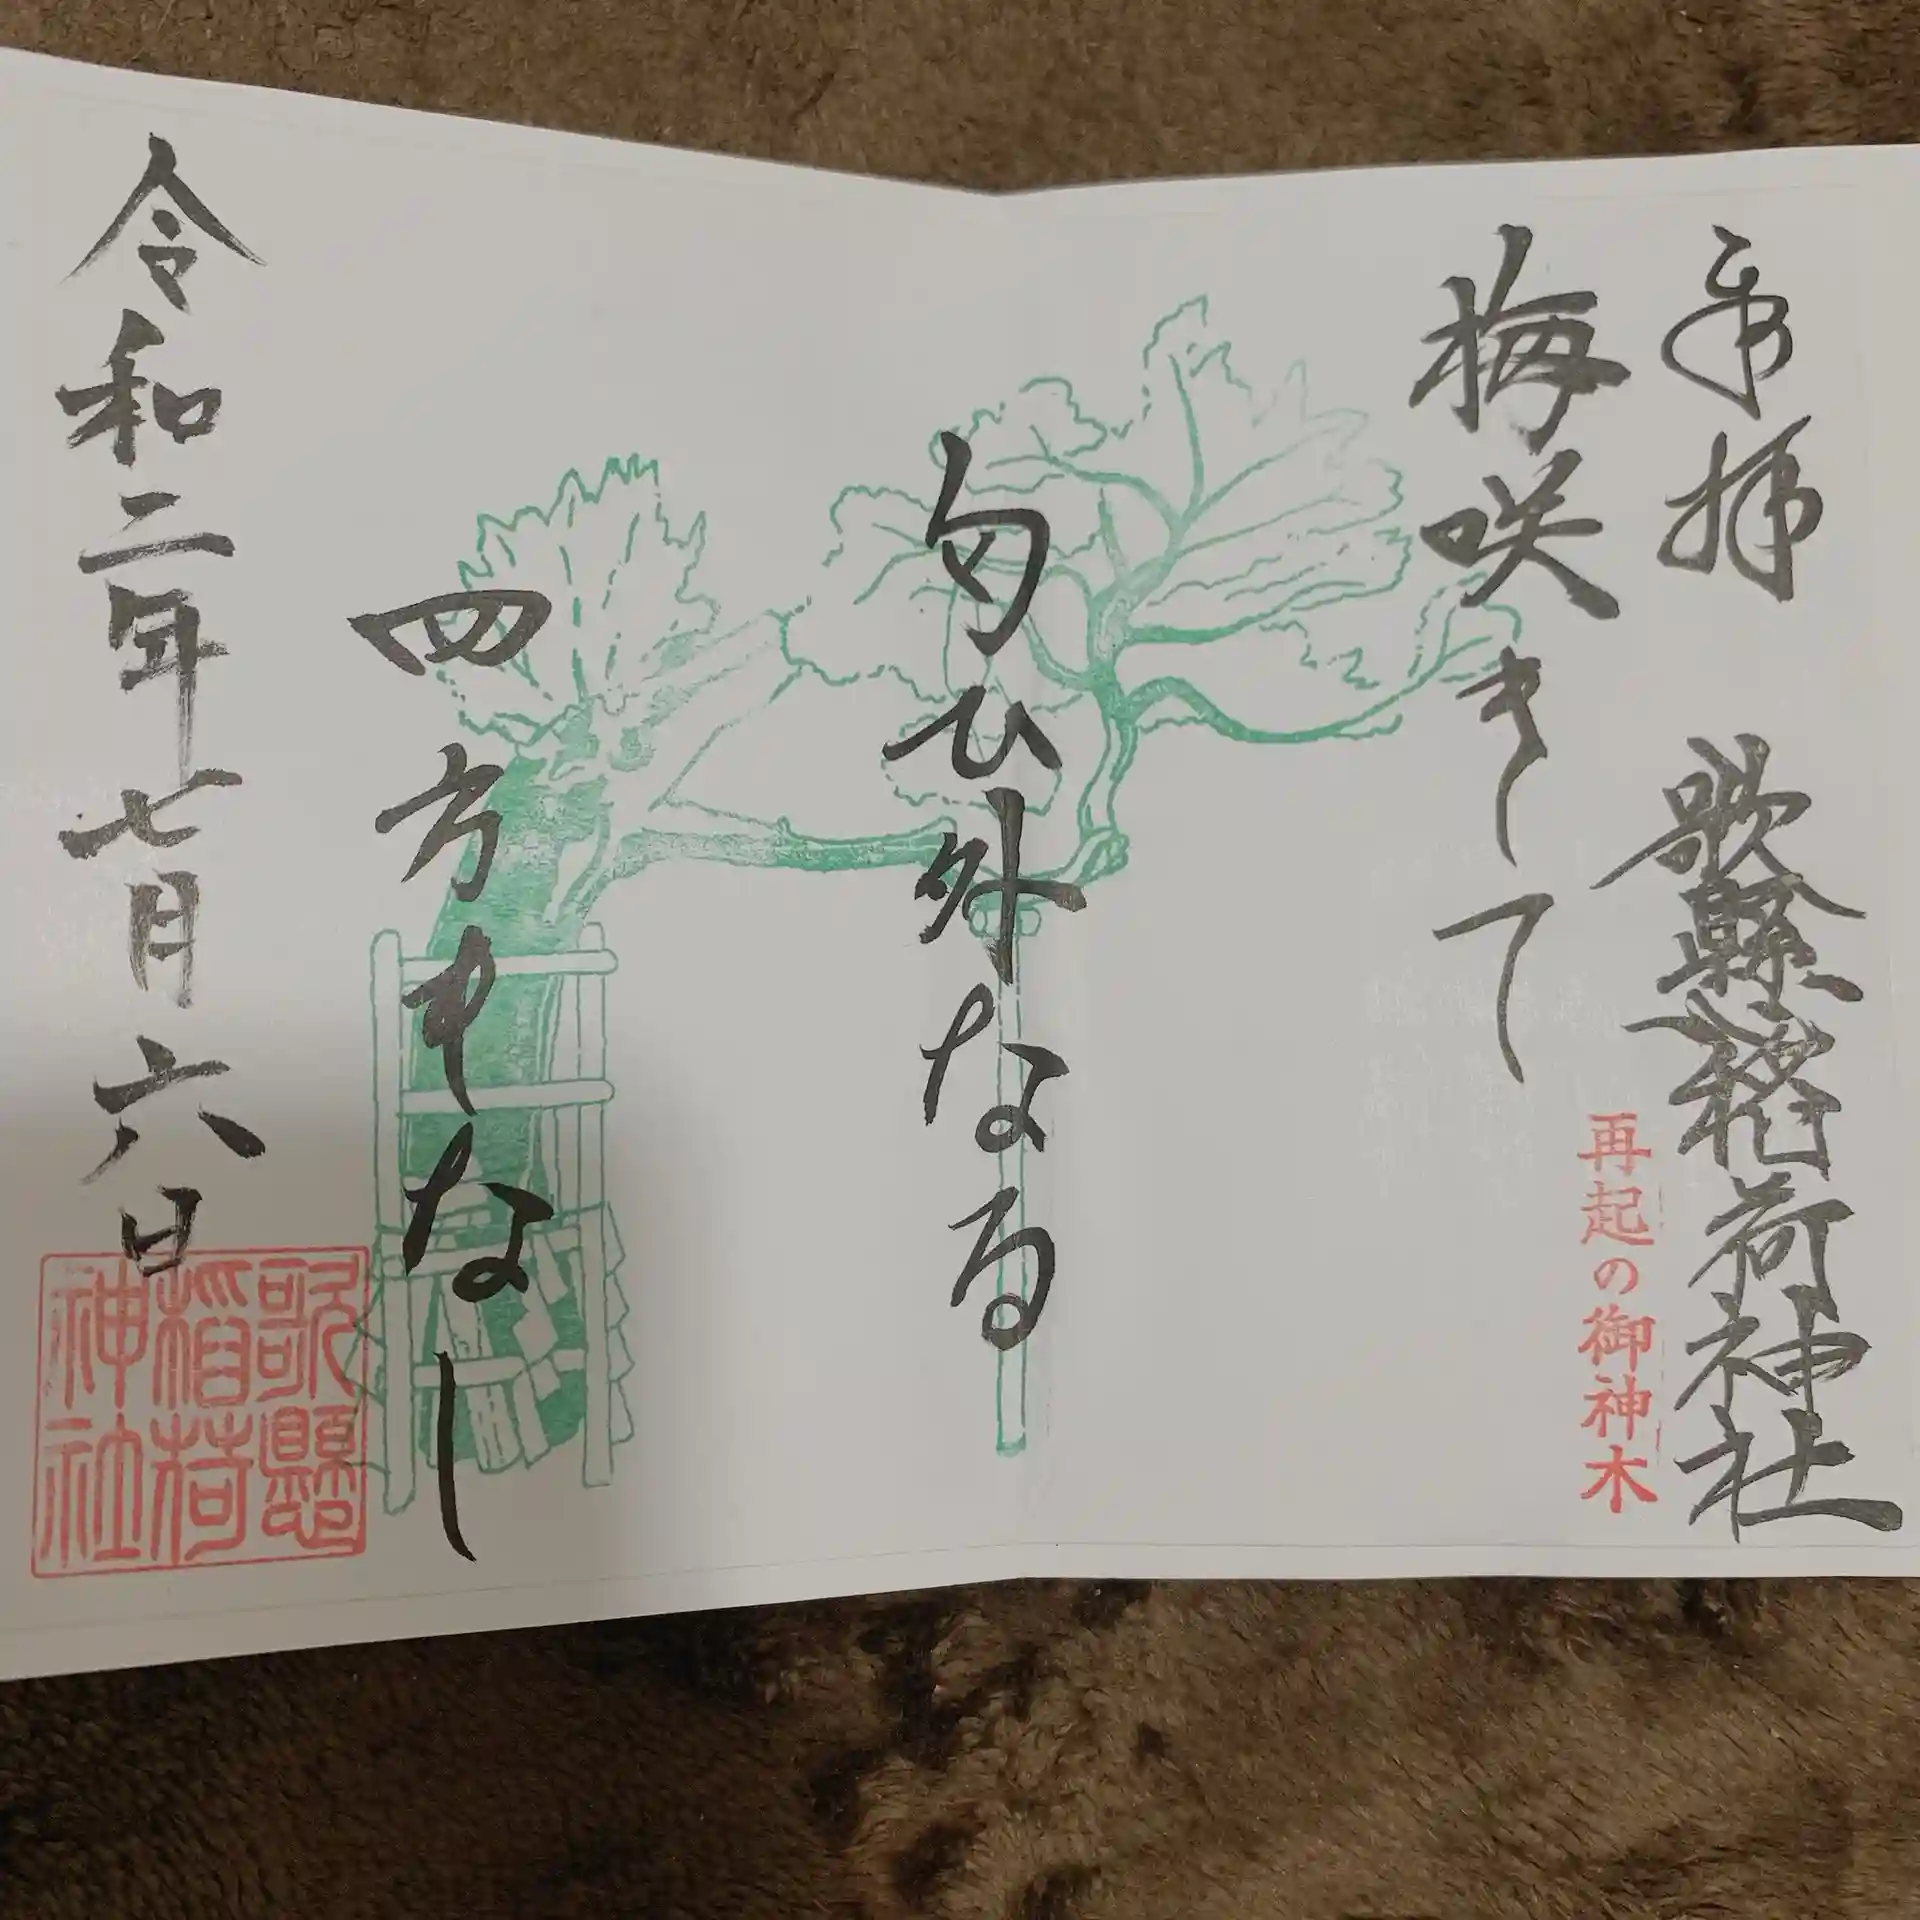 奉拝 歌懸稲荷神社
再起の御神木
梅咲きて
匂ひ外なる
四方もなし
令和二年七月六日
歌懸
稲荷
神社